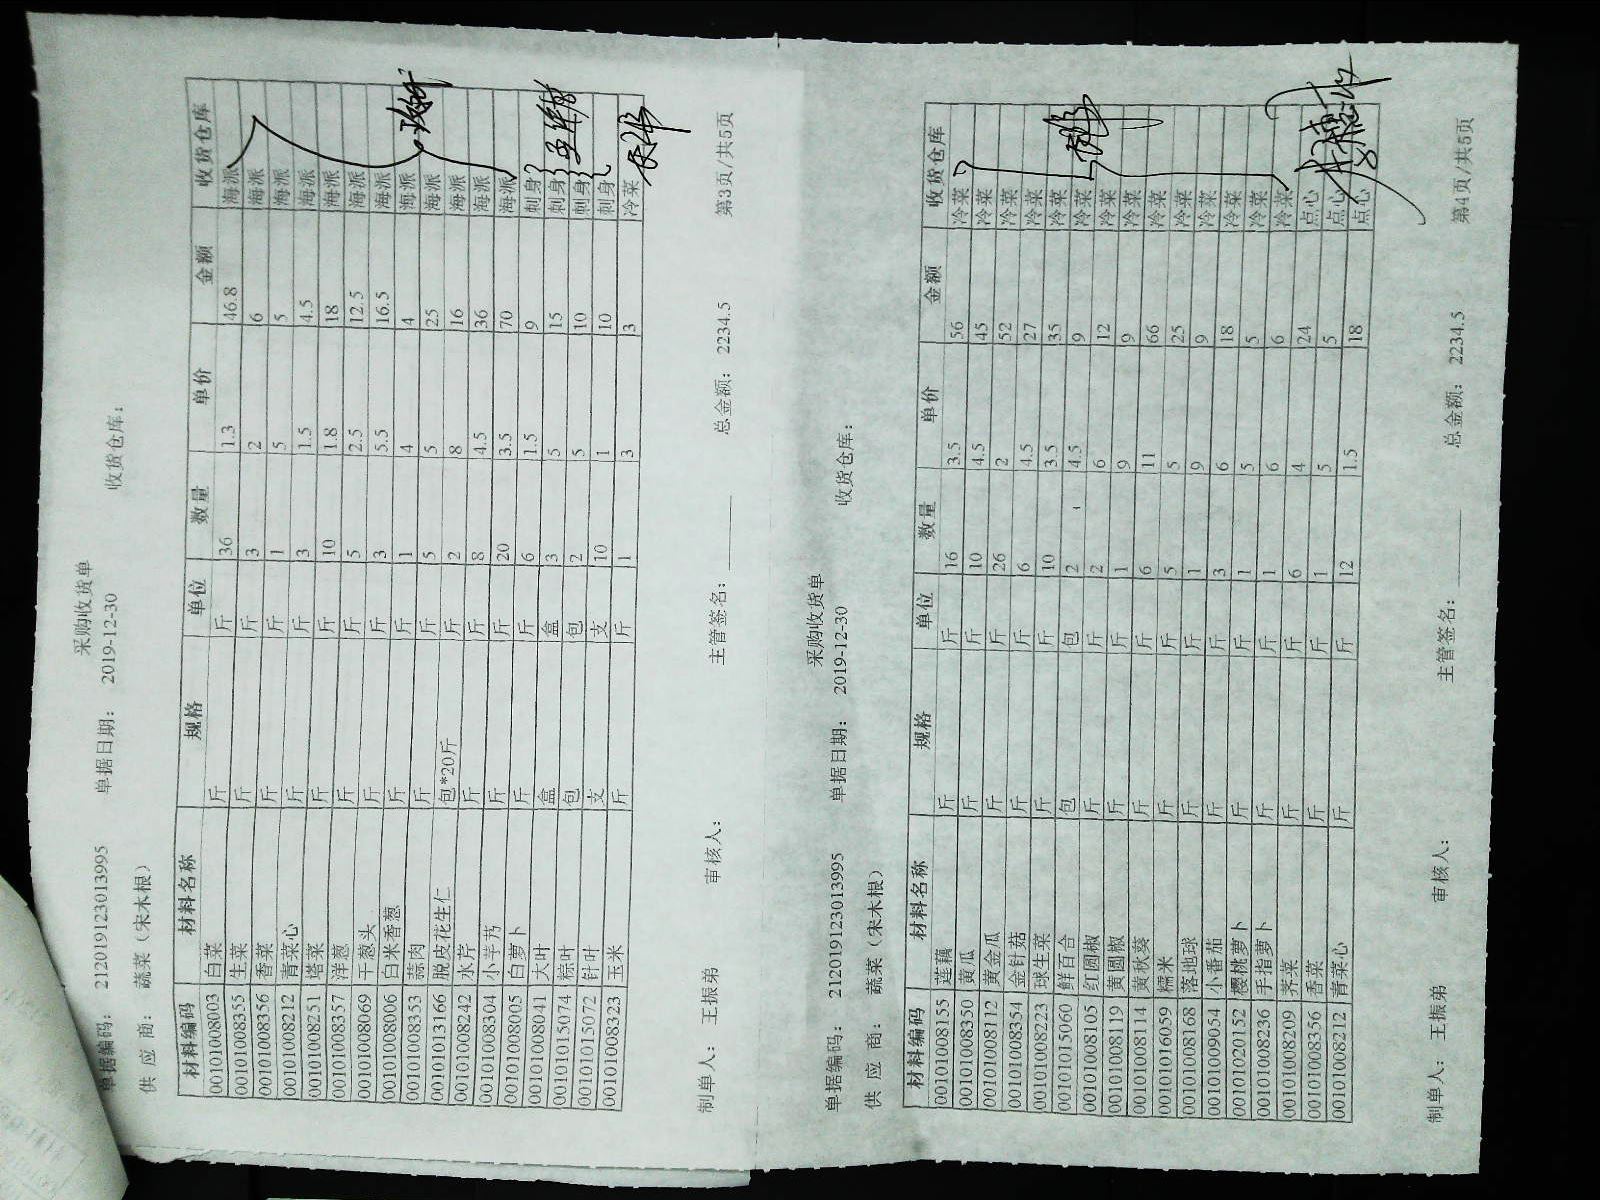 采购收货单
单据编码： 21201912301​3995 单据日期： 2019-12-30 收货仓库：
供 应 商： 蔬菜（宋木根）
材料编码 材料名称 规格 单位 数量 单价 金额 收货仓库
00101008003 白菜 斤 斤 36 1.3 46.8 海派
00101008355 生菜 斤 斤 3 2 6 海派
00101008356 香菜 斤 斤 1 5 5 海派
00101008212 青菜心 斤 斤 3 1.5 4.5 海派
00101008251 塔菜 斤 斤 10 1.8 18 海派
00101008357 洋葱 斤 斤 5 2.5 12.5 海派
00101008069 干葱头 斤 斤 3 5.5 16.5 海派
00101008006 白米香葱 斤 斤 1 4 4 海派
00101008353 蒜肉 斤 斤 5 5 25 海派
00101013166 脱皮花生仁 包*20斤 斤 2 8 16 海派
00101008242 水芹 斤 斤 8 4.5 36 海派
00101008304 小芋艿 斤 斤 20 3.5 70 海派
00101008005 白萝卜 斤 斤 6 1.5 9 刺身
00101008041 大叶 盒 盒 3 5 15 刺身
00101015074 粽叶 包 包 2 5 10 刺身
00101015072 针叶 支 支 10 1 10 刺身
00101008323 玉米 斤 斤 1 3 3 冷菜
总金额： 2234.5
制单人： 王振弟 审核人： 主管签名： 第3页/共5页
采购收货单
单据编码： 212019123013995 单据日期： 2019-12-30 收货仓库：
供 应 商： 蔬菜（宋木根）
材料编码 材料名称 规格 单位 数量 单价 金额 收货仓库
00101008155 莲藕 斤 斤 16 3.5 56 冷菜
00101008350 黄瓜 斤 斤 10 4.5 45 冷菜
00101008112 黄金瓜 斤 斤 26 2 52 冷菜
00101008354 金针菇 斤 斤 6 4.5 27 冷菜
00101008223 球生菜 斤 斤 10 3.5 35 冷菜
00101015060 鲜百合 包 包 2 4.5 9 冷菜
00101008105 红圆椒 斤 斤 2 6 12 冷菜
00101008119 黄圆椒 斤 斤 1 9 9 冷菜
00101008114 黄秋葵 斤 斤 6 11 66 冷菜
00101016059 糯米 斤 斤 5 5 25 冷菜
00101008168 落地球 斤 斤 1 9 9 冷菜
00101009054 小番茄 斤 斤 3 6 18 冷菜
00101020152 樱桃萝卜 斤 斤 1 5 5 冷菜
00101008236 手指萝卜 斤 斤 1 6 6 冷菜
00101008209 荠菜 斤 斤 6 4 24 点心
00101008356 香菜 斤 斤 1 5 5 点心
00101008212 青菜心 斤 斤 12 1.5 18 点心
总金额： 2234.5
制单人： 王振弟 审核人： 主管签名： 第4页/共5页